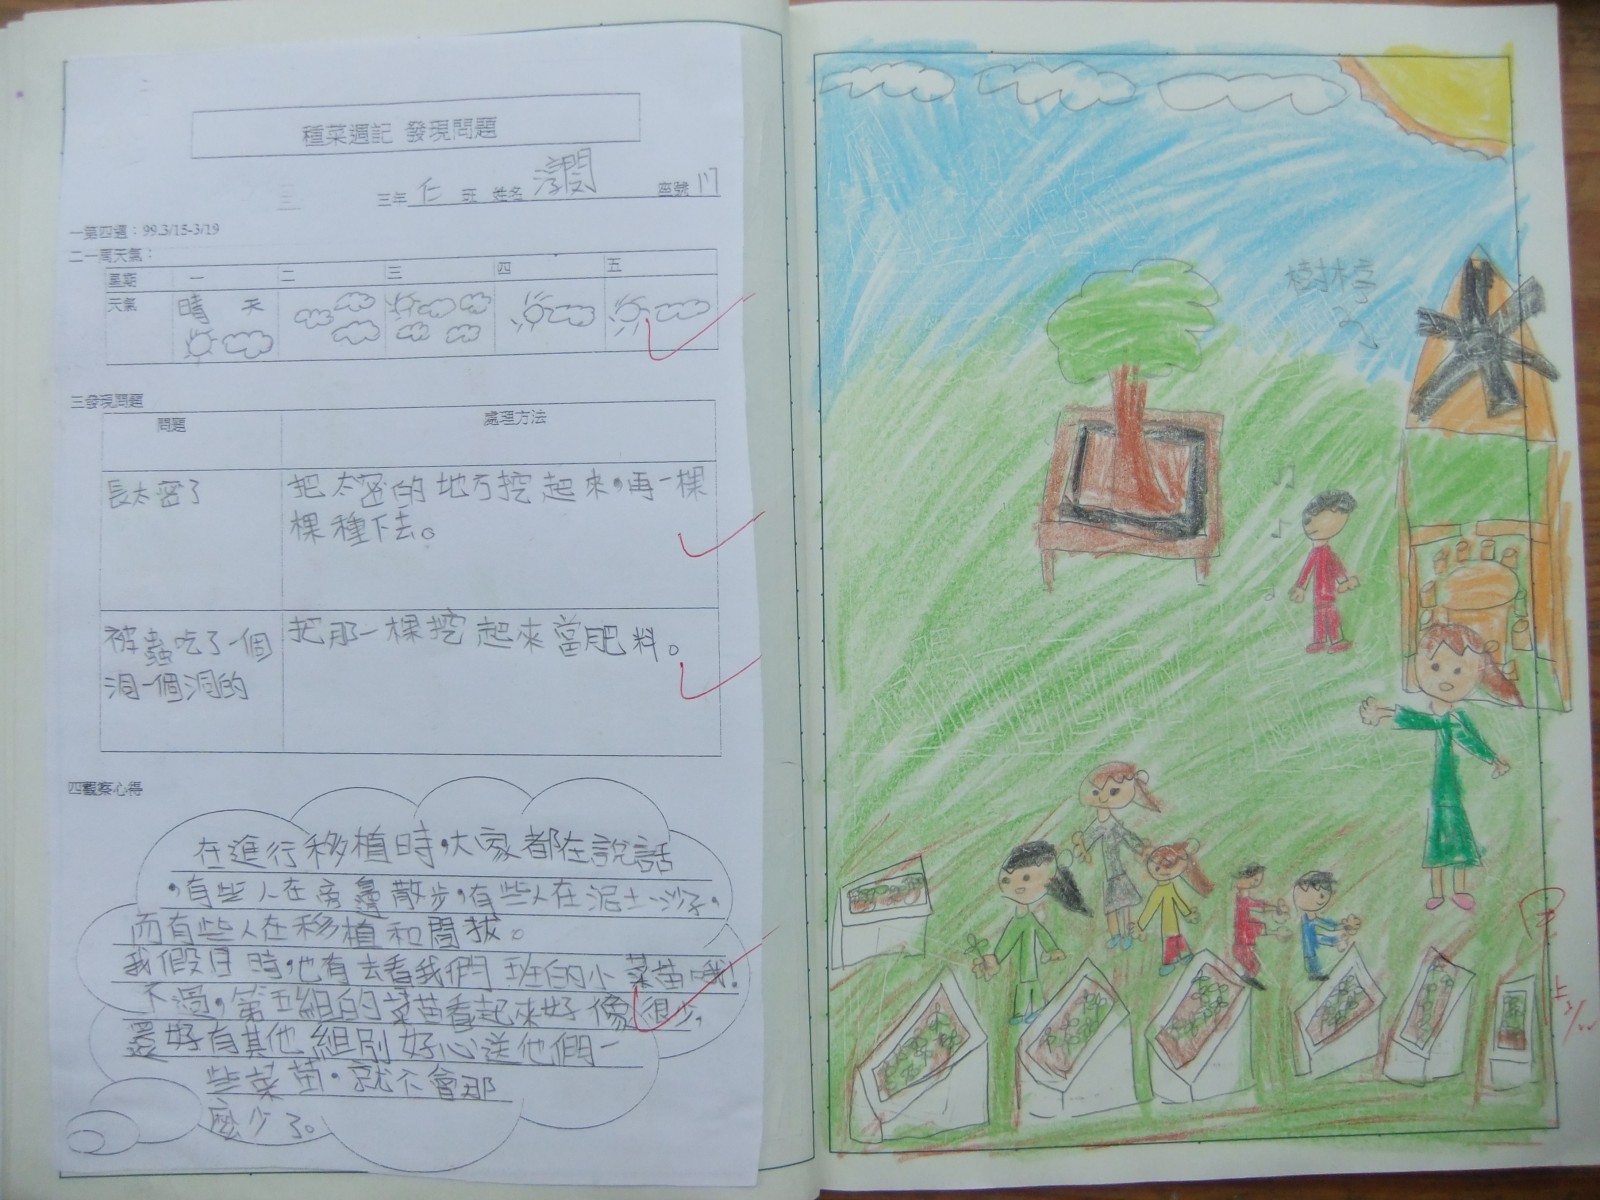 種菜週記 發現問題
三年 仁 班 姓名 淳閔 座號 17
一第四週：99.3/15-3/19
二一周天氣：
星期 一 二 三 四 五
天氣 晴天
三發現問題
問題 處理方法
長太密了 把太密的地方挖起來，再一棵
棵種下去。
被蟲吃了一個 把那一棵挖起來當肥料。
洞一個洞的
四觀察心得
在進行移植時，大家都在說話
，有些人在旁邊散步，有些人在泥土沙子，
而有些人在移植和間拔。
我假日時，也有去看我們班的小菜苗哦！
不過，第五組的菜苗看起來好像很少，
還好有其他組別好心送他們一
些菜苗，就不會那
麼少了。
樹林亭